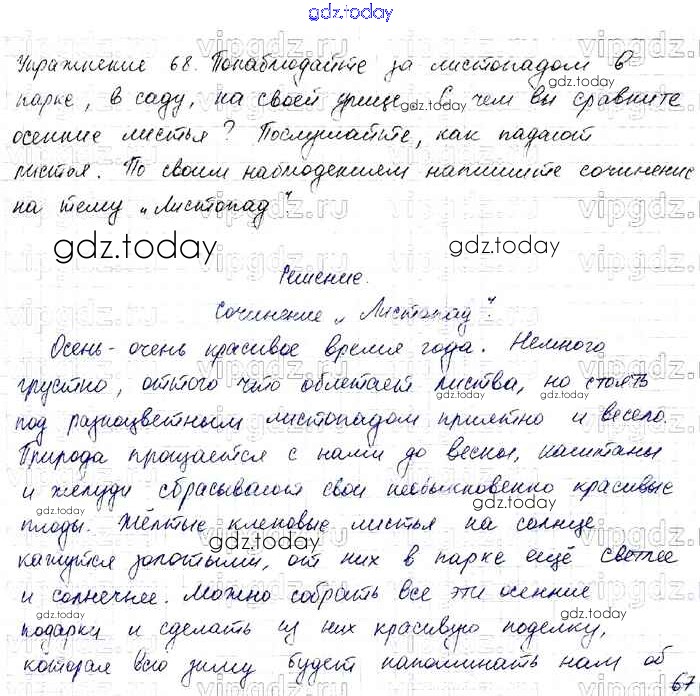 gdz.today
Упражнение 68. Понаблюдайте за листопадом в
парке, в саду, на своей улице. С чем вы сравните
осенние листья? Послушайте, как падают
листья. По своим наблюдениям напишите сочинение
на тему „Листопад".
Решение.
Сочинение „Листопад".
Осень - очень красивое время года. Немного
грустно, оттого что облетает листва, но стоять
под разноцветным листопадом приятно и весело.
Природа прощается с нами до весны, каштаны
и жёлуди сбрасывают свои необыкновенно красивые
плоды. Жёлтые кленовые листья на солнце
кажутся золотыми, от них в парке ещё светлее
и солнечнее. Можно собрать все эти осенние
подарки и сделать из них красивую поделку,
которая всю зиму будет напоминать нам об
67